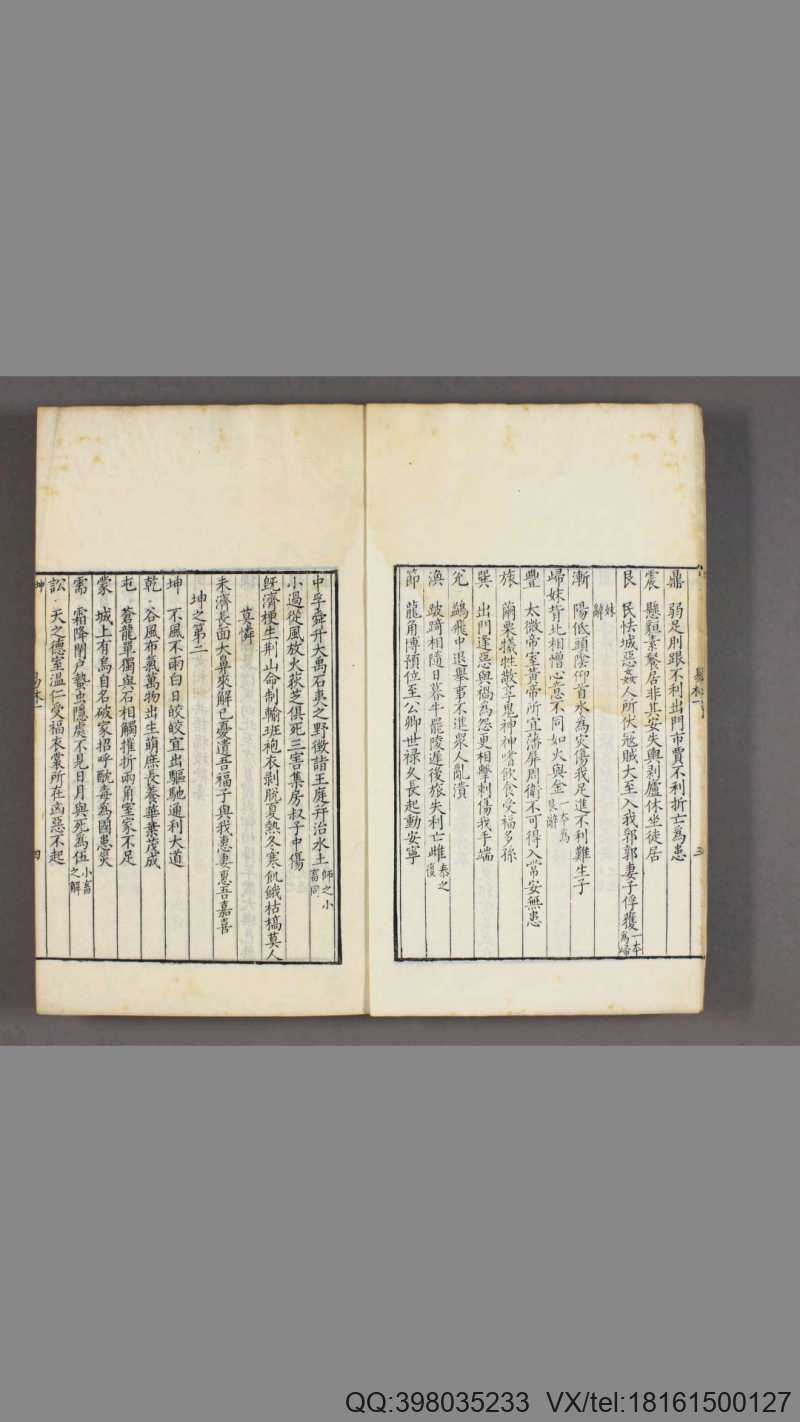 鼎 弱足刖跟不利出門市賈不利折亡為患
震 懸貆素餐居非其安失輿剥廬休坐徒居
艮 民怯城惡姦人所伏寇賊大至入我郛郭妻子俘獲一本為歸
妹辭
漸 陽低頭陰仰首水為灾傷我足進不利難生子
歸妹背北相憎心意不同如火與金一本為艮辭
豐 太微帝室黄帝所宜藩屏周衛不可得入常安無患
旅 繭栗犠牲敬享鬼神神嗜飲食受福多孫
巽 出門逢惡與禍為怨更相擊刺傷我手端
兊 鷁飛中退舉事不進衆人亂潰
渙 跛踦相隨日暮牛罷陵遲後旅失利亡雌泰之復
節 龍角博預位至公卿世禄久長起動安寧
中孚舜升大禹石夷之野徵諸王庭拜治水土師之小畜同
小過從風放火荻芝俱死三害集房叔子中傷
既濟梗生荆山命制輸班袍衣剥脱夏熱冬寒飢餓枯槁莫人
莫憐
未濟長面大鼻來解已憂遺吾福子與我惠妻惠吾嘉喜
坤之第二
坤 不風不雨白日皎皎宜出驅馳通利大道
乾 谷風布氣萬物出生萌庶長養華葉茂成
屯 蒼龍單獨與石相觸摧折兩角室家不足
蒙 城上有烏自名破家招呼酖毒為國患灾
需 霜降閉户蟄虫隱處不見日月與死為伍小畜之解
訟 天之德室温仁受福衣裳所在凶惡不起
三
四
QQ:398035233 VX/tel:18161500127